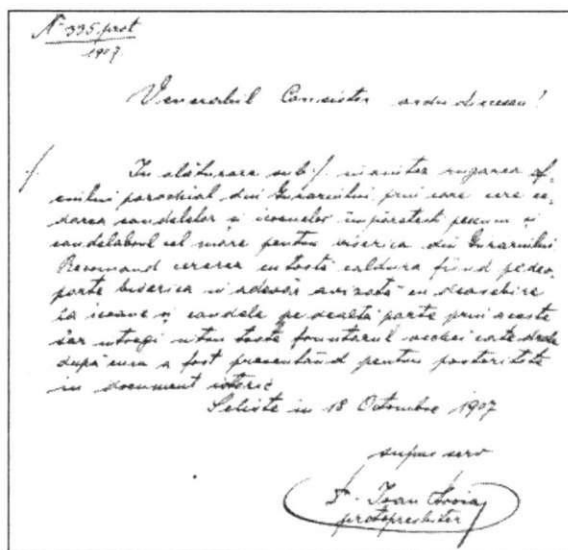 Nº 335 prot
1907.
Venerabil Consistor arhidiecesan!
·/. In alăturare sub ·/. înaintez rugarea ofi-
ciului parochial din Gurariului prin care cere ce-
darea candelelor și icoanelor împărătești precum și
candelabrul cel mare pentru biserica din Gurariului
Recomand cererea cu toată căldura fiind pe deo-
parte biserica în adevăr avizată cu deosebire
la icoane și candele pe dealtă parte prin aceste
s'ar întregi tóte catedrale
după cum a fost presentând pentru posteritate
un document istoric
Seliște in 18 Octomvre 1907
supus serv
Dr. Ioan
protopresbiter